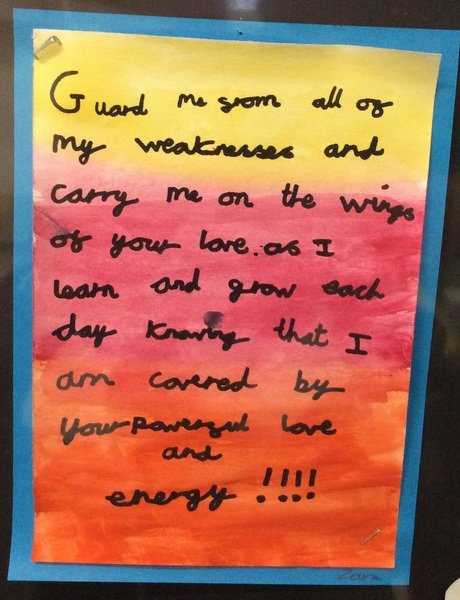 Guard me from all of
my weaknesses and
carry me on the wings
of your love. as I
learn and grow each
day knowing that I
am covered by
your powerful love
and
energy !!!!
Zara